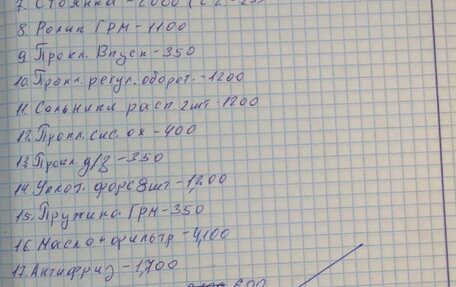 7. Стоянка - 2000 (
8. Ролик ГРМ - 1100
9. Прокл. Впуск - 350
10. Прокл. регул. оборот. - 1200
11. Сальники расп 2шт - 1200
12. Прокл. сис. ох - 400
13. Прокл. д/з - 350
14. Уплот. форс 8шт - 1,200
15. Пружина. ГРМ - 350
16. Масло + фильтр - 4,100
17. Антифриз - 1,700
600